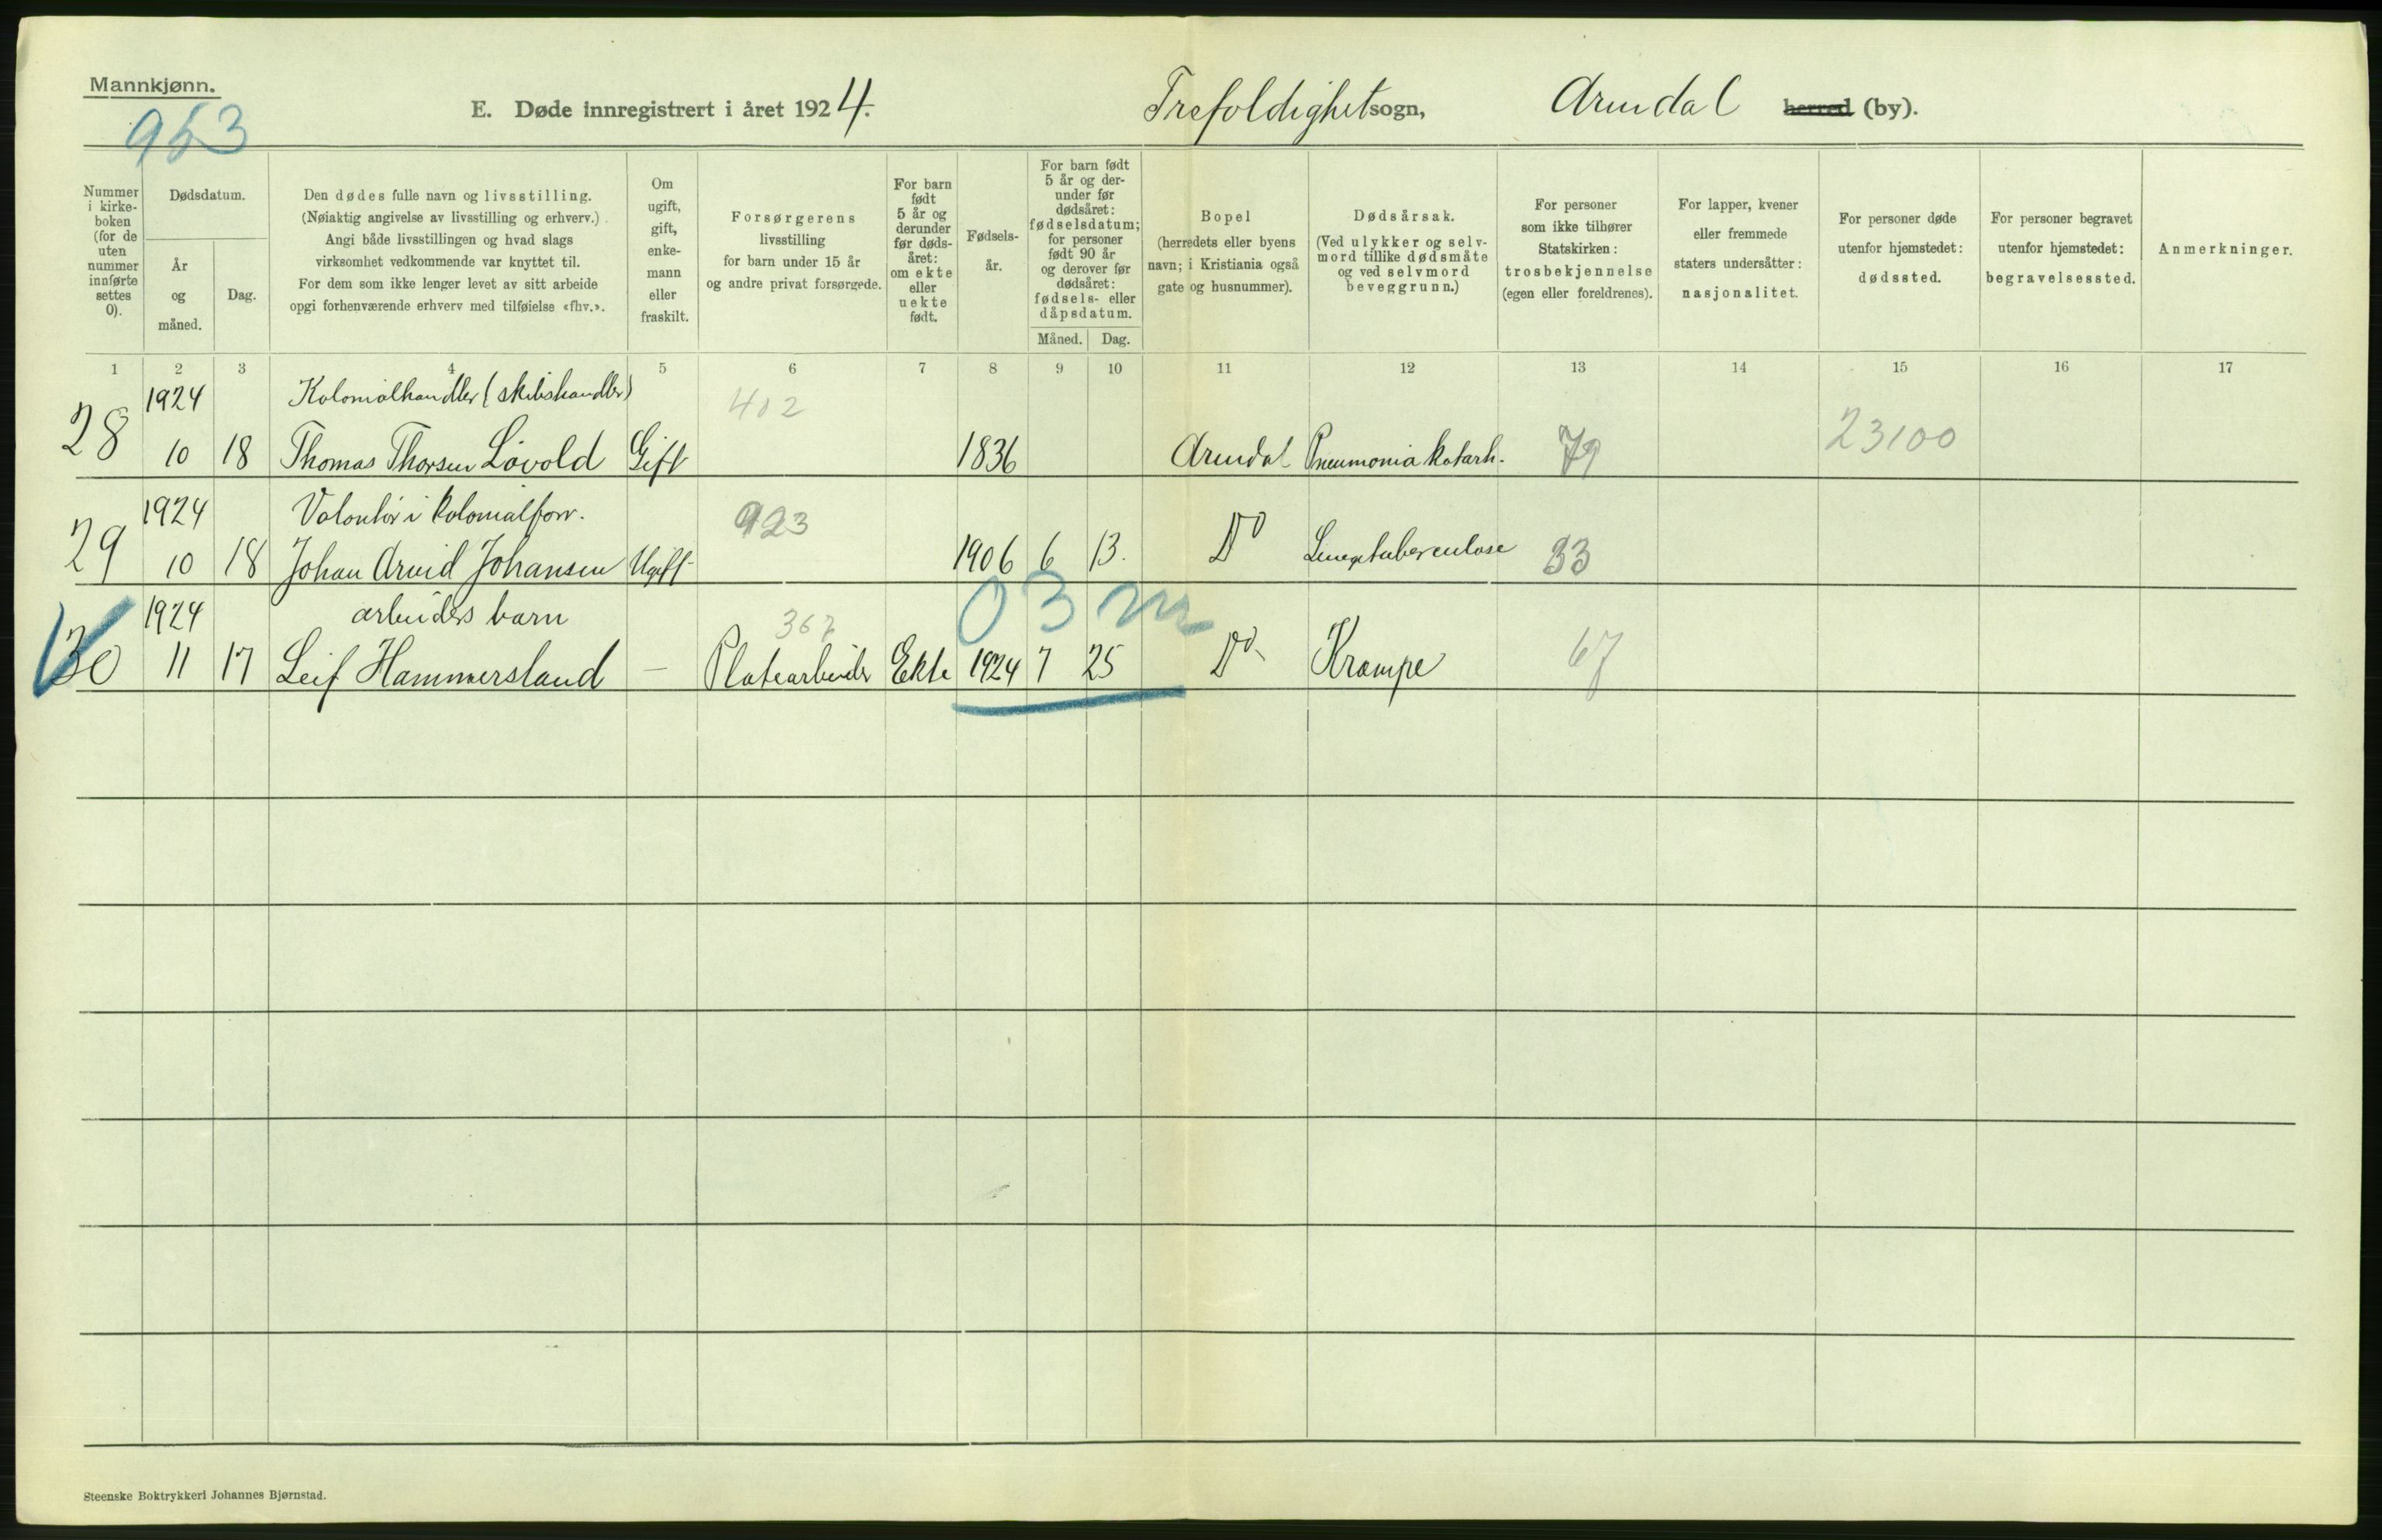 Mannkjønn.
953
E. Døde innregistrert i året 1924.
Trefoldighet sogn,
Arendal herred (by).
Nummer i kirke-boken (for de uten nummer innførte settes 0).
Dødsdatum.
År og måned.
Dag.
Den dødes fulle navn og livsstilling.
(Nøiaktig angivelse av livsstilling og erhverv.)
Angi både livsstillingen og hvad slags
virksomhet vedkommende var knyttet til.
For dem som ikke lenger levet av sitt arbeide
opgi forhenværende erhverv med tilføielse «fhv.».
Om ugift, gift, enke-mann eller fraskilt.
Forsørgerens
livsstilling
for barn under 15 år
og andre privat forsørgede.
For barn født 5 år og derunder før døds-året: om ekte eller uekte født.
Fødsels-år.
For barn født 5 år og der-under før dødsåret: fødselsdatum; for personer født 90 år og derover før dødsåret: fødsels- eller dåpsdatum.
Måned.
Dag.
Bopel
(herredets eller byens
navn; i Kristiania også
gate og husnummer).
Dødsårsak.
(Ved ulykker og selv-
mord tillike dødsmåte
og ved selvmord
beveggrunn.)
For personer
som ikke tilhører
Statskirken:
trosbekjennelse
(egen eller foreldrenes).
For lapper, kvener
eller fremmede
staters undersåtter:
nasjonalitet.
For personer døde
utenfor hjemstedet:
dødssted.
For personer begravet
utenfor hjemstedet:
begravelsessted.
Anmerkninger.
1 2 3 4 5 6 7 8 9 10 11 12 13 14 15 16 17
1924 Kolonialhandler (skibshandler) 402
28 10 18 Thomas Thorsen Løvold Gift 1836 Arendal Pneumonia katarh. 79 23100
1924 Volontør i kolonialforr. 923
29 10 18 Johan Arvid Johansen Ugift 1906 6 13. Do Lungetuberculose 33
1924 arbeiders barn 367 03m
30 11 17 Leif Hammersland — Platearbeider Ekte 1924 7 25 Do Krampe 67
Steenske Boktrykkeri Johannes Bjørnstad.